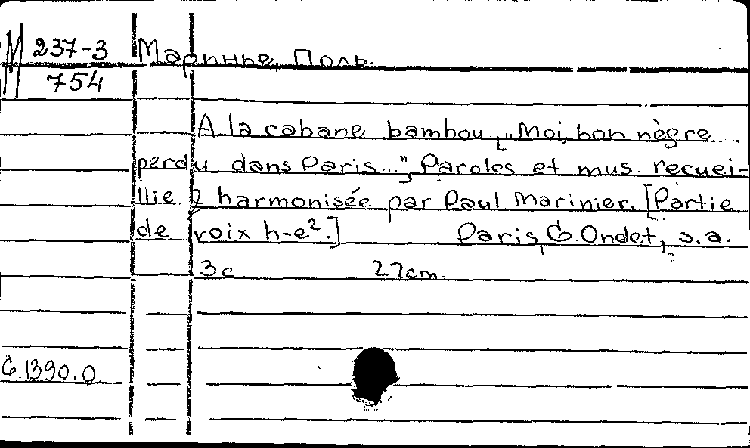 М 237-3
754
Маринье Поль.
A la cabane bambou, „Moi, bon nègre
perdu dans Paris...”, Paroles et mus. recuei-
llie & harmonisée par Paul Marinier. [Partie
de voix h-e².] Paris, G. Ondet, s.a.
3 c 27cm.
G.1390.0